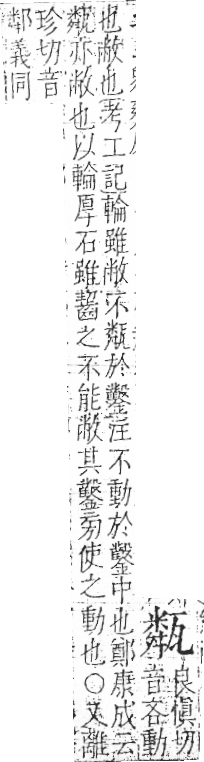 甐
良慎切
音吝動
也敝也考工記輪雖敝不甐於鑿注不動於鑿中也鄭康成云
甐亦敝也以輪厚石雖齧之不能敝其鑿旁使之動也○又離
珍切音
鄰義同